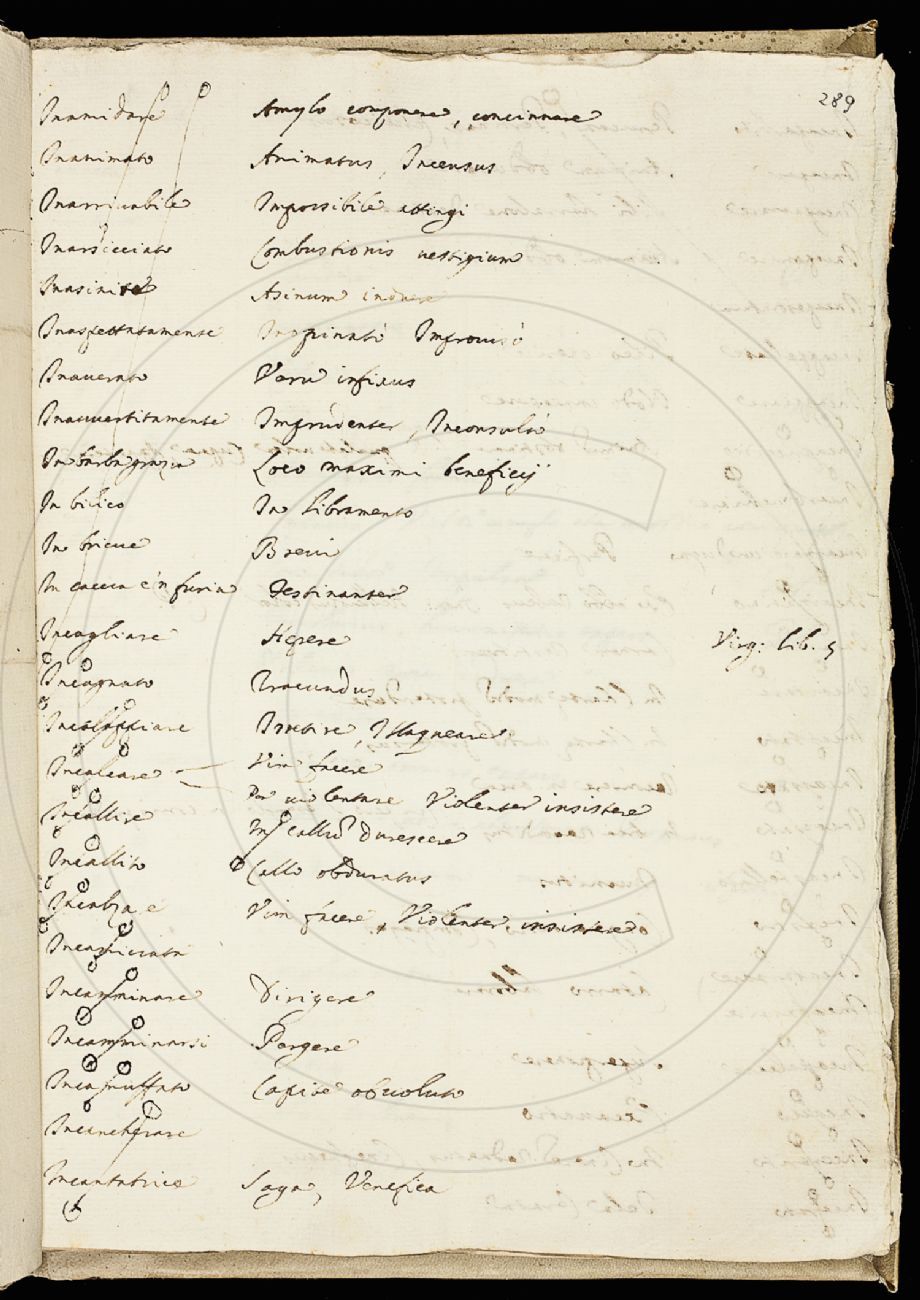 289
Inamidare Amylo componere, concinnare
Inanimato Animatus, Incensus
Inarrivabile Impossibile attingi
Inarsicciato Combustionis vestigium
Inasinire Asinum induere
Inaspettatamente Inopinatò Improvisò
Inaverato Veru infixus
Inavvertitamente Imprudenter, Inconsultò
In barba grazia Loco maximi beneficij
In bilico In libramento
In brieve Brevi
In caccia e'n furia Festinanter
Incagliare Hęrere Virg: lib. 5
Incagnato Iracundus
Incalappiare Irretire, Illaqueare
Incalcare Vim facere
Per violentare Violenter insistere
Incallire In callū durescere
Incallito Callo obduratus
Incalzare Vim facere, Violenter insistere
Incamiciata
Incamminare Dirigere
Incamminarsi Pergere
Incamuffato Capite obvoluto
Incancherare
Incantatrice Saga, Venefica